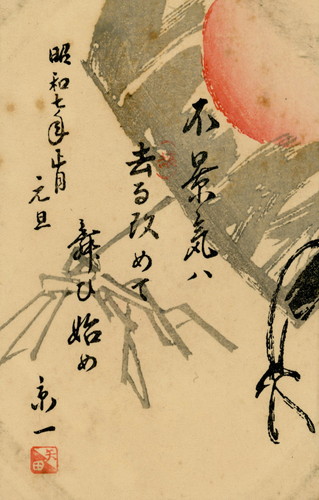 不景気ハ
去る改めて
舞ひ始め
昭和七年正月
元旦
京一
矢田